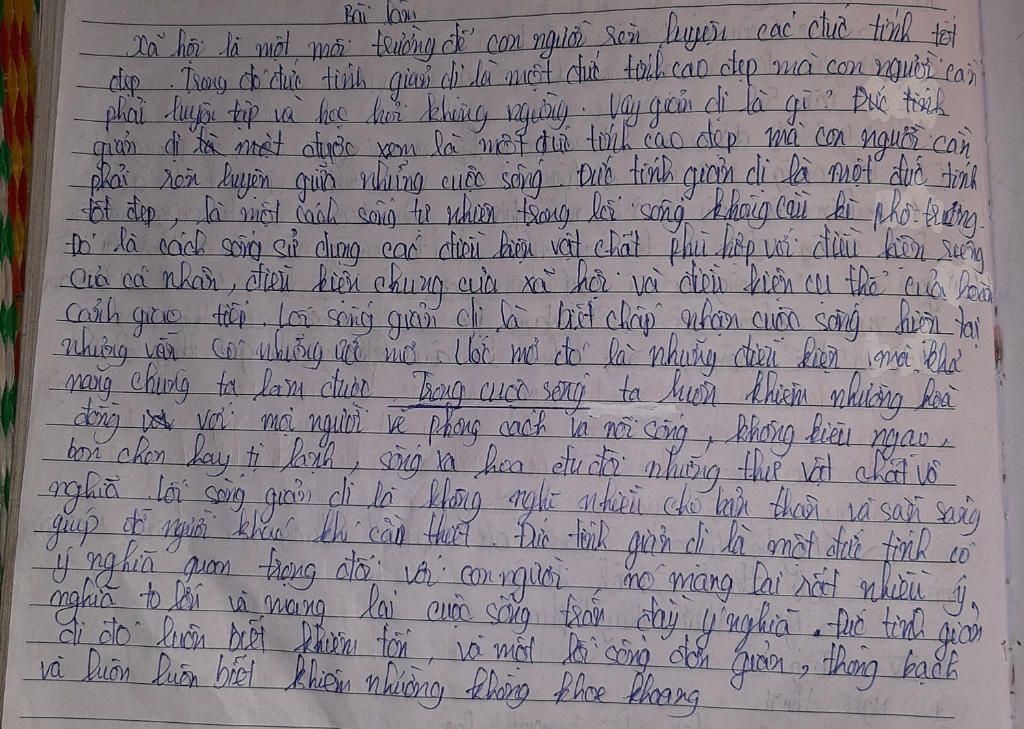 Bài làm
Xã hội là một môi trường để con người rèn luyện các đức tính tốt
đẹp. Trong đó đức tính giản dị là một đức tính cao đẹp mà con người cần
phải luyện tập và học hỏi không ngừng. Vậy giản dị là gì? Đức tính
giản dị là một được xem là một đức tính cao đẹp mà con người cần
phải rèn luyện giữa những cuộc sống. Đức tính giản dị là một đức tính
tốt đẹp, là một cách sống tự nhiên trong lối sống không cầu kì phô trương.
Đó là cách sống sử dụng các điều kiện vật chất phù hợp với điều kiện riêng
của cá nhân, điều kiện chung của xã hội và điều kiện cụ thể của hoàn
cảnh giao tiếp. Lối sống giản dị là biết chấp nhận cuộc sống hiện tại
nhưng vẫn có những ước mơ. Ước mơ đó là những điều kiện mà khả
năng chúng ta làm được. Trong cuộc sống ta luôn khiêm nhường hoà
đồng với mọi người về phong cách và nối sống, không kiêu ngạo,
bon chen hay tị lạnh, sống xa hoa đua đòi những thứ vật chất vô
nghĩa. Lối sống giản dị là không nghĩ nhiều cho bản thân và sẵn sàng
giúp đỡ người khác khi cần thiết. Đức tính giản dị là một đức tính có
ý nghĩa quan trọng đối với con người, nó mang lại rất nhiều ý
nghĩa to lớn và mang lại cuộc sống tràn đầy ý nghĩa. Đức tính giản
dị đó luôn biết khiêm tốn, và một lối sống đơn giản, thông bạch
và luôn luôn biết khiêm nhường không khoe khoang